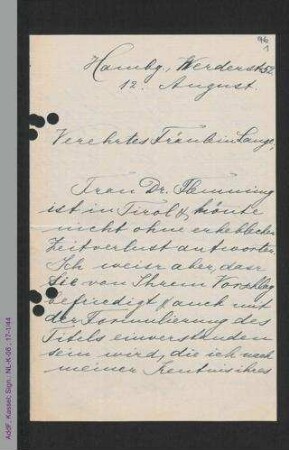 96
1
Hambg. Werderstr. 52.
12. August.
Verehrtes Fräulein Lange,
Frau Dr. Flemming
ist in Tirol & könnte
nicht ohne erheblichen
Zeitverlust antworten.
Ich weiss aber, dass
Sie von Ihrem Vorschlag
befriedigt & auch mit
der Formulierung des
Titels einverstanden
sein wird, die ich nach
meiner Kentnis ihres
AddF, Kassel; Sign.: NL-K-06 ; 17-1/44